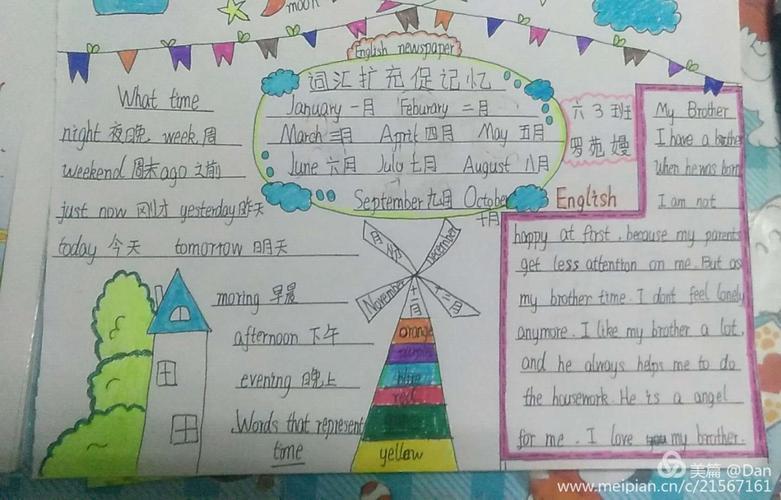 moon
English newspaper
What time
night 夜晚 week 周
weekend 周末 ago 之前
just now 刚才 yesterday 昨天
today 今天 tomorrow 明天
moring 早晨
afternoon 下午
evening 晚上
Words that represent
time
词汇扩充促记忆
January 一月 Feburary 二月
March 三月 April 四月 May 五月
June 六月 July 七月 August 八月
September 九月 October
十月
月份
December
November
十一月
十二月
orange
purple
blue
red
yellow
六3班
罗苑嫚
English
My Brother
I have a brother
when he was born
I am not
happy at first, because my parents
get less attention on me. But as
my brother time. I don't feel lonely
anymore. I like my brother a lot,
and he always helps me to do
the housework. He is a angel
for me. I love my brother.
美篇 @Dan
www.meipian.cn/c/21567161